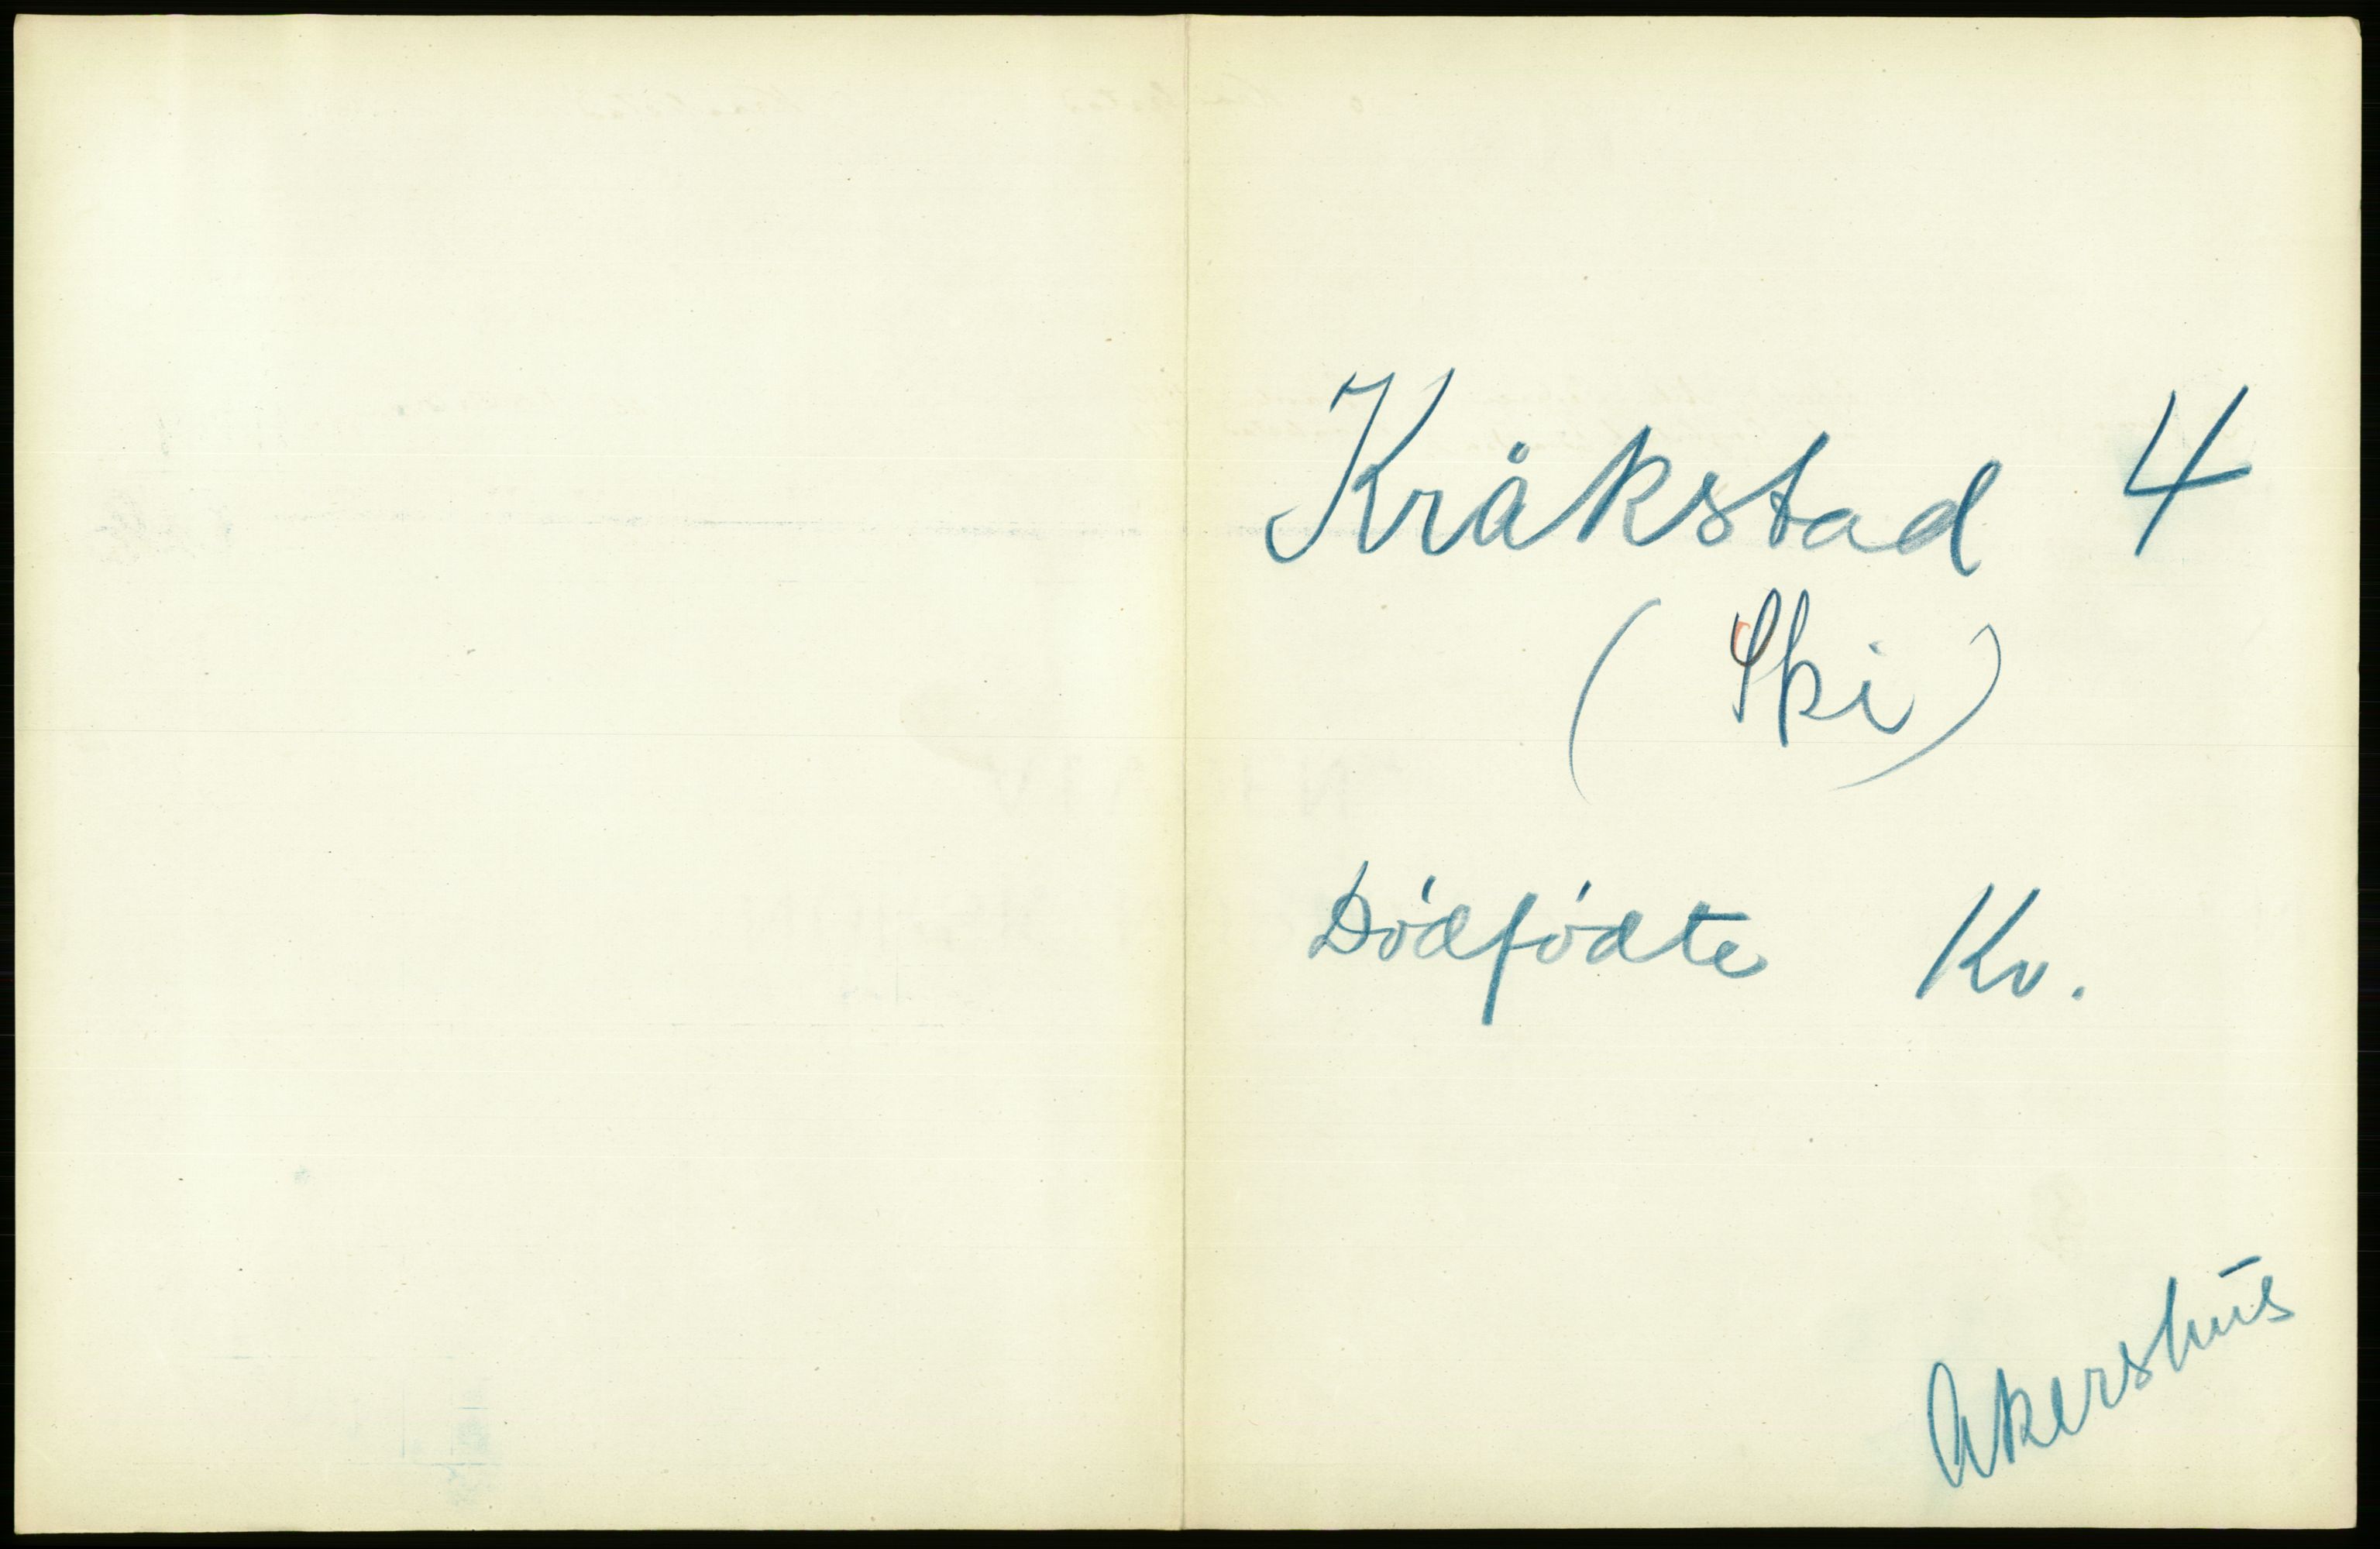 Kråkstad 4
(Ski)
Dødfødte Kv.
Akershus